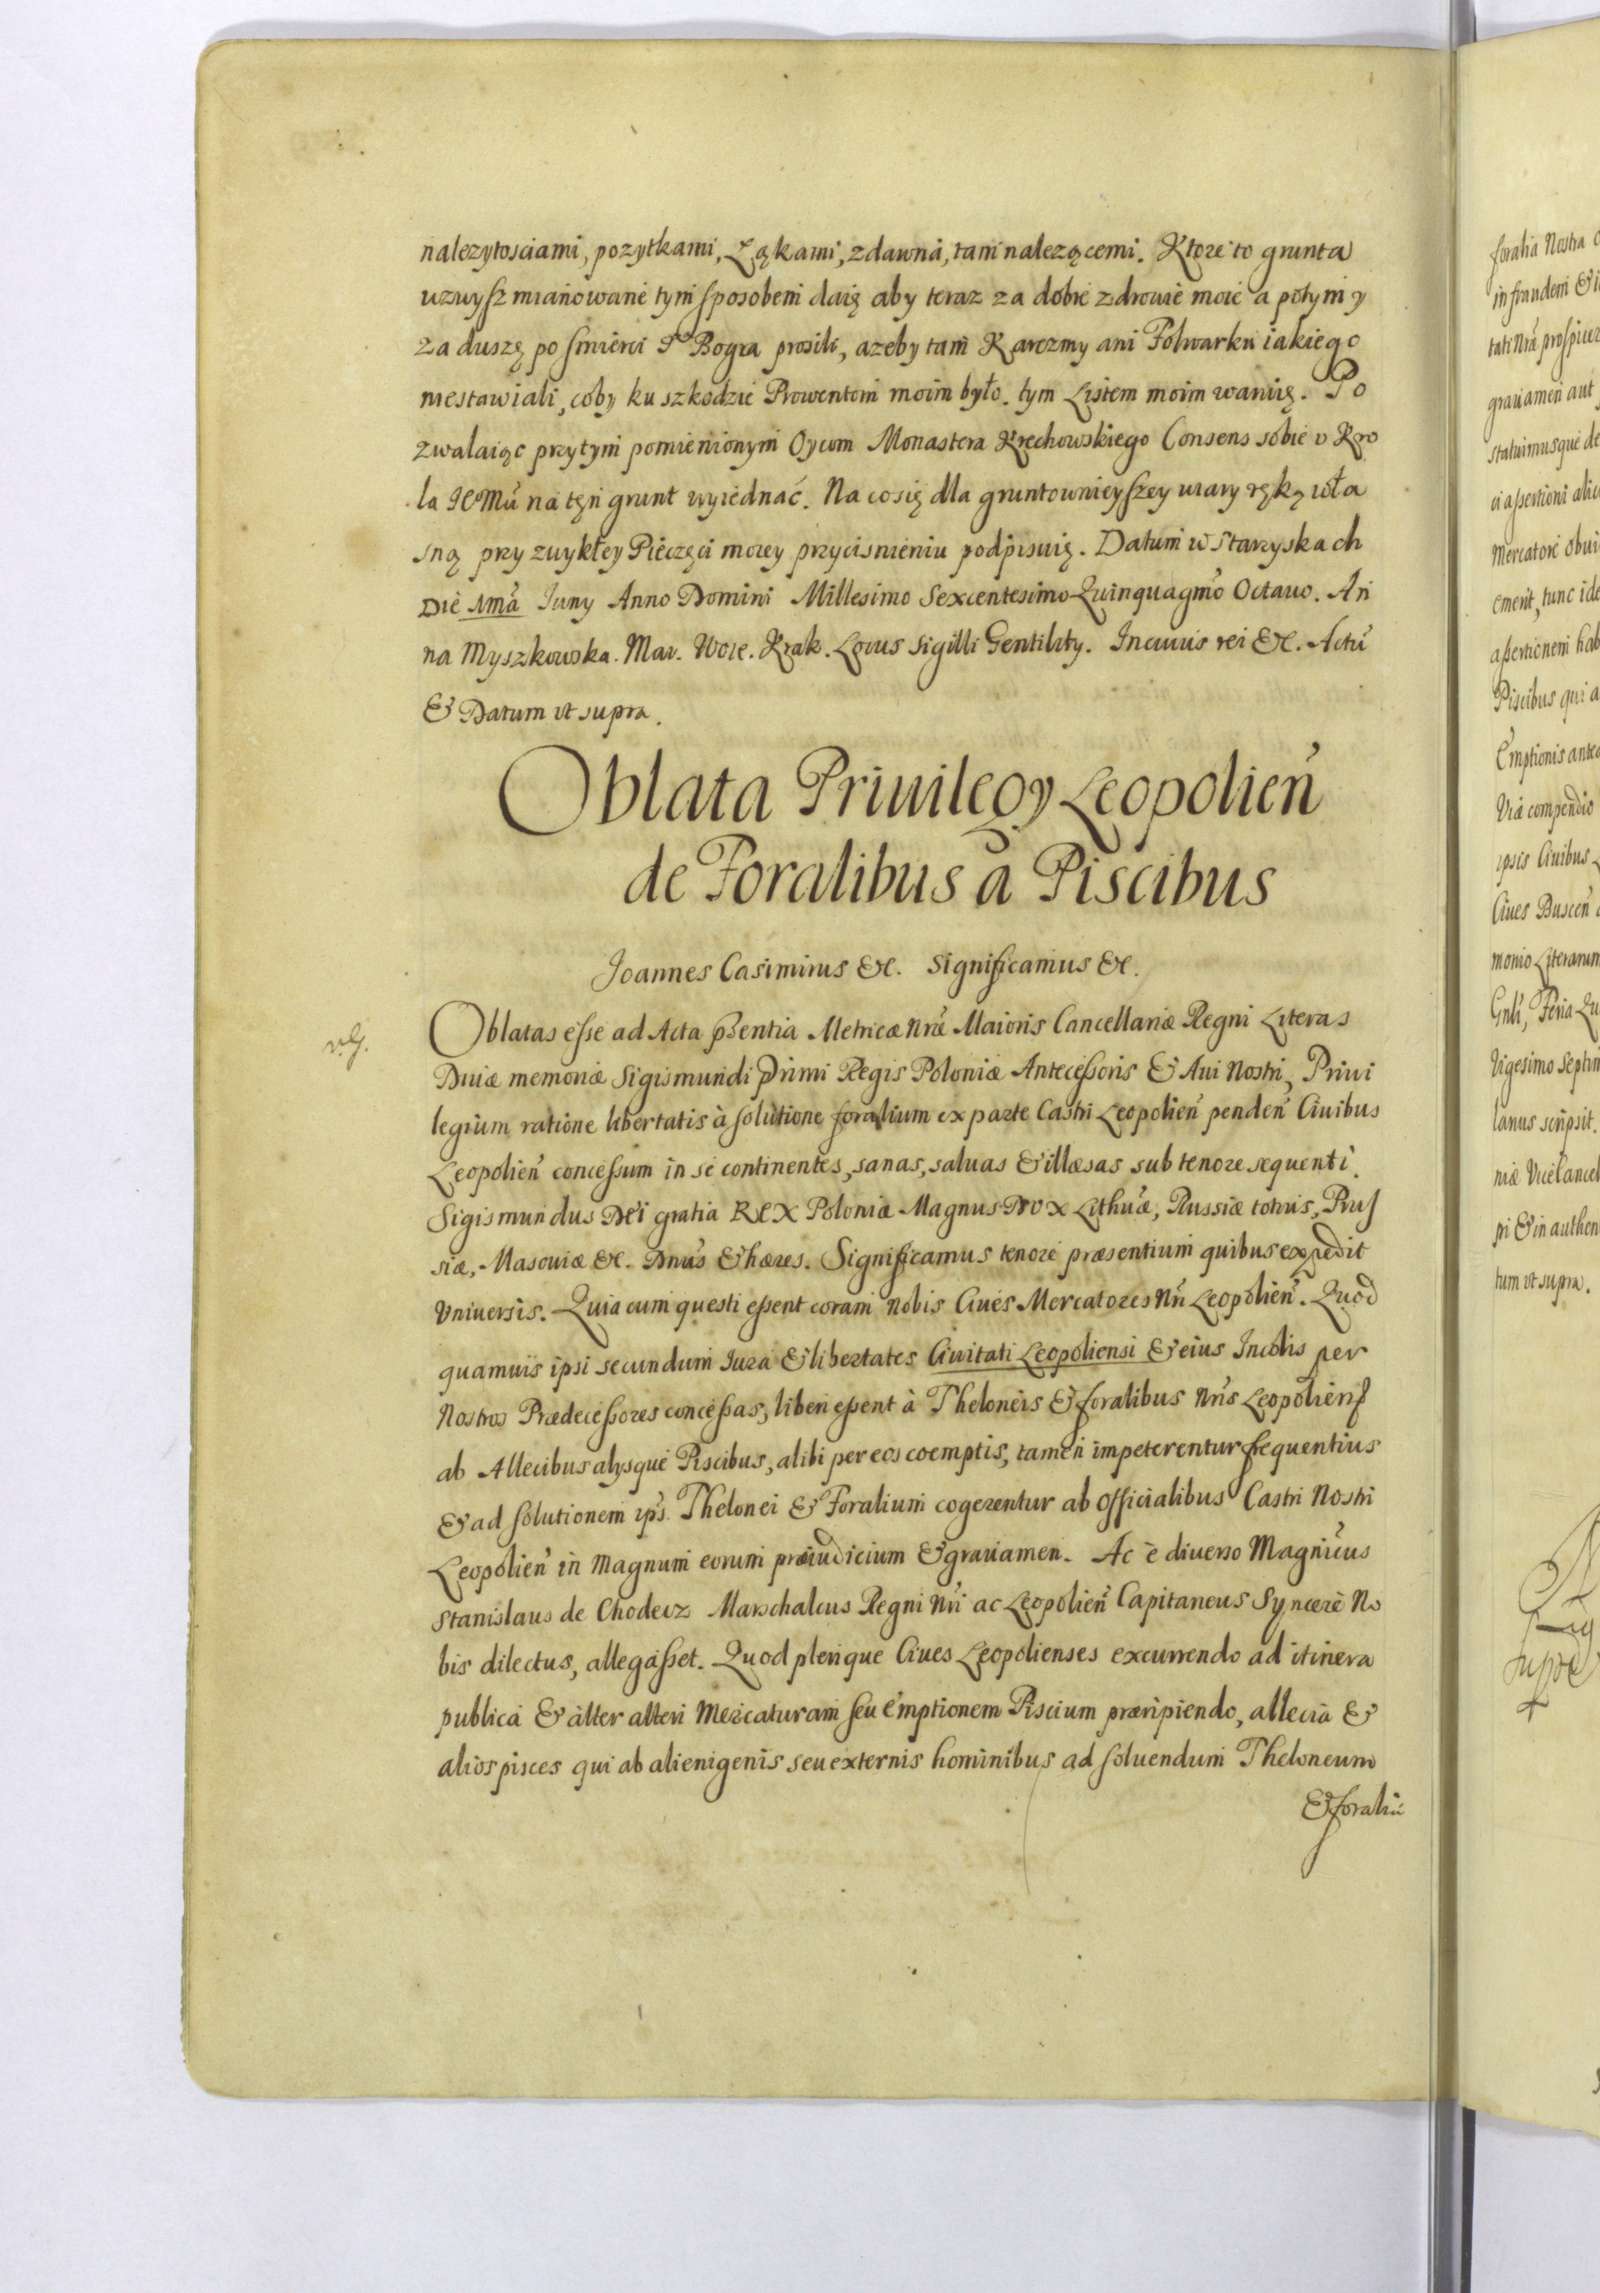 nalezytosciami, pozytkami, Łąkami, zdawna, tam nalezącemi. Ktore to grunta
uzwysz mianowane tym sposobem daię aby teraz za dobre zdrowie moie a potym y
za duszę po smierci Pa Boga prosili, azeby tam Karczmy ani Folwarku iakiego
niestawiali, coby ku szkodzie Prowentom moim było. tym Listem moim waruię. Po
zwalaiąc przytym pomienionym Oycom Monastera Krechowskiego Consens sobie v Kro
la IeMu na tęn grunt wyiednać. Na co się dla gruntownieyszey wiary ręką wła
sną przy zwykłey Pieczęci moiey przycisnieniu podpisuię. Datum w Staryskach
Die 1ma Iuny Anno Domini Millesimo Sexcentesimo Quinquagmo Octauo. An
na Myszkowska. Mar. Woie. Krak. Locus Sigilli Gentility. In cuius rei &c. Actu
& Datum vt supra.
Oblata Priuilegy Leopolien
de Foralibus a Piscibus
Joannes Casimirus &c. Significamus &c.
Oblatas esse ad Acta pSentia Metricæ Nræ Maioris Cancellariæ Regni Literas
Diuæ memoriæ Sigismundi Primi Regis Poloniæ Antecessoris & Aui Nostri, Priui
legium ratione libertatis à solutione foralium ex parte Castri Leopolien penden Ciuibus
Leopolien concessum in se continentes, sanas, saluas & illæsas sub tenore sequenti.
Sigismundus Dei gratia Rex Poloniæ Magnus Dux Lithuæ, Russiæ totius, Prus
siæ, Masouiæ &c. Dnus & hæres. Significamus tenore præsentium quibus expedit
Vniuersis. Quia cum questi essent coram Nobis Ciues Mercatores Nri Leopolien. Quod
quamuis ipsi secundum Iura & libertates Ciuitati Leopoliensi & eius Incolis per
Nostros Prædecessores concessas, liberi essent à Theloneis & foralibus Nris Leopolien
ab Allecibus alysque Piscibus, alibi per eos coemptis, tamen impeterentur frequentius
& ad solutionem ips Thelonei & Foralium cogerentur ab Officialibus Castri Nostri
Leopolien in Magnum eorum præiudicium & grauamen. Ac è diuerso Magnicus
Stanislaus de Chodecz Marschalcus Regni Nri ac Leopolien Capitaneus Syncere No
bis dilectus, allegasset. Quod plerique Ciues Leopolienses excurrendo ad itinera
publica & alter alteri Mercaturam seu Emptionem Piscium præripiendo, allecia &
alios pisces qui ab alienigenis seu externis hominibus ad soluendum Theloneum
& foraliu